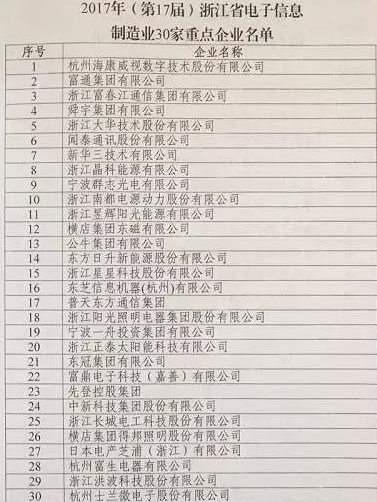 2017年(第17届)浙江省电子信息
制造业30家重点企业名单
序号 企业名称
1 杭州海康威视数字技术股份有限公司
2 富通集团有限公司
3 浙江富春江通信集团有限公司
4 舜宇集团有限公司
5 浙江大华技术股份有限公司
6 闻泰通讯股份有限公司
7 新华三技术有限公司
8 浙江晶科能源有限公司
9 宁波群志光电有限公司
10 浙江南都电源动力股份有限公司
11 浙江昱辉阳光能源有限公司
12 横店集团东磁有限公司
13 公牛集团有限公司
14 东方日升新能源股份有限公司
15 浙江星星科技股份有限公司
16 东芝信息机器(杭州)有限公司
17 普天东方通信集团
18 浙江阳光照明电器集团股份有限公司
19 宁波一舟投资集团有限公司
20 浙江正泰太阳能科技有限公司
21 东冠集团有限公司
22 富鼎电子科技(嘉善)有限公司
23 先登控股集团
24 中新科技集团股份有限公司
25 浙江长城电工科技股份有限公司
26 横店集团得邦照明股份有限公司
27 日本电产芝浦(浙江)有限公司
28 杭州富生电器有限公司
29 浙江洪波科技股份有限公司
30 杭州士兰微电子股份有限公司